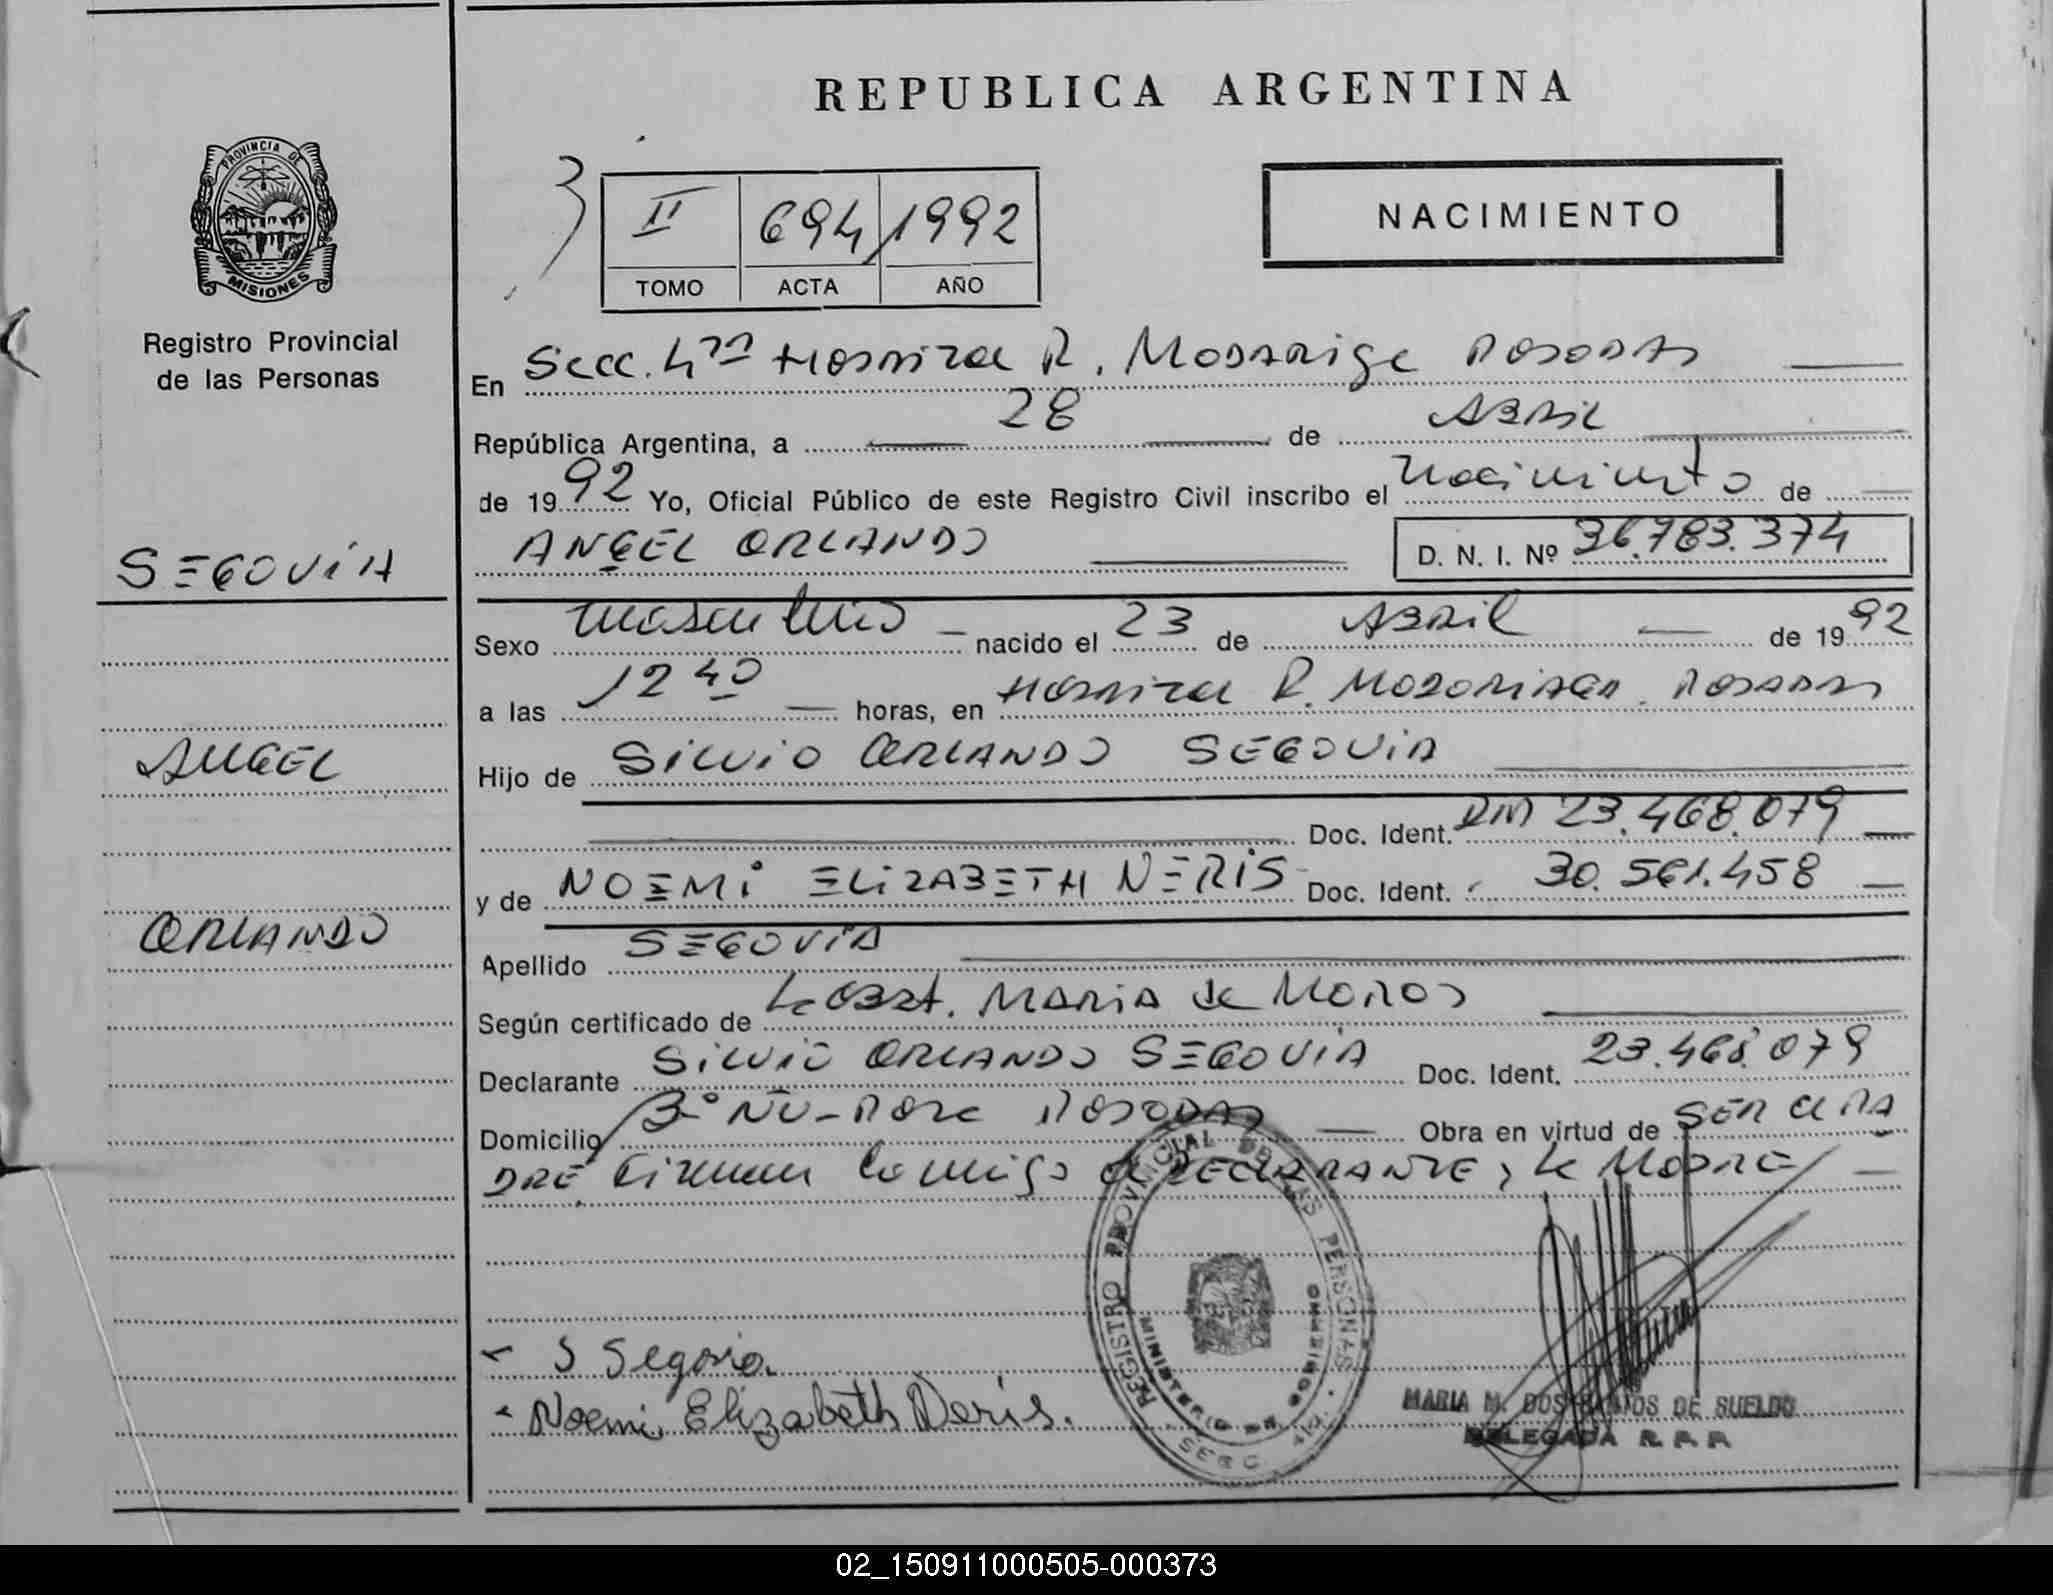 REPUBLICA ARGENTINA
PROVINCIA DE
MISIONES
Registro Provincial
de las Personas
II 694 1992
TOMO ACTA AÑO
NACIMIENTO
En Secc. 4ta Hospital R. Madariaga Posadas
República Argentina, a 28 de Abril
de 1992 Yo, Oficial Público de este Registro Civil inscribo el nacimiento de
SEGOVIA
ANGEL ORLANDO D. N. I. Nº 36.783.374
Sexo masculino nacido el 23 de Abril de 1992
a las 12 40 horas, en Hospital R. Madariaga. Posadas
ANGEL
Hijo de SILVIO ORLANDO SEGOVIA
Doc. Ident. DNI 23.468.079
y de NOEMI ELIZABETH NERIS Doc. Ident. 30.561.458
ORLANDO
Apellido SEGOVIA
Según certificado de la Obst. MARIA de
Declarante SILVIO ORLANDO SEGOVIA Doc. Ident. 23.468.079
Domicilio Bº POSADAS Obra en virtud de SER el PA
DRE. Firman conmigo el DECLARANTE y la MADRE
REGISTRO PROVINCIAL DE LAS PERSONAS
MINISTERIO DE GOBIERNO
SECC. 4ta.
S Segovia.
Noemi Elizabeth Neris.
MARIA M. DOS SANTOS DE SUELDO
DELEGADA R. P. P.
02_150911000505-000373